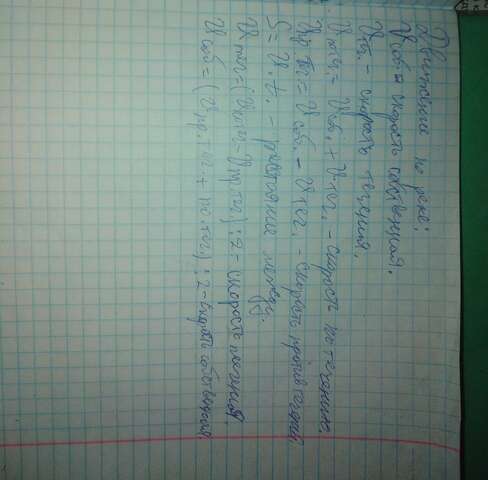 Движение по реке:
Vсоб. - скорость собственная.
Vтеч. - скорость течения.
Vпо теч. = Vсоб. + Vтеч. - скорость по течению
Vпр. теч. = Vсоб. - Vтеч. - скорость против течения
S = V · t. - расстояние между.
Vтеч = (Vпо теч - Vпр теч.) : 2 - скорость течения
Vсоб = (Vпр. теч. + по. теч.) : 2 - скорость собственная